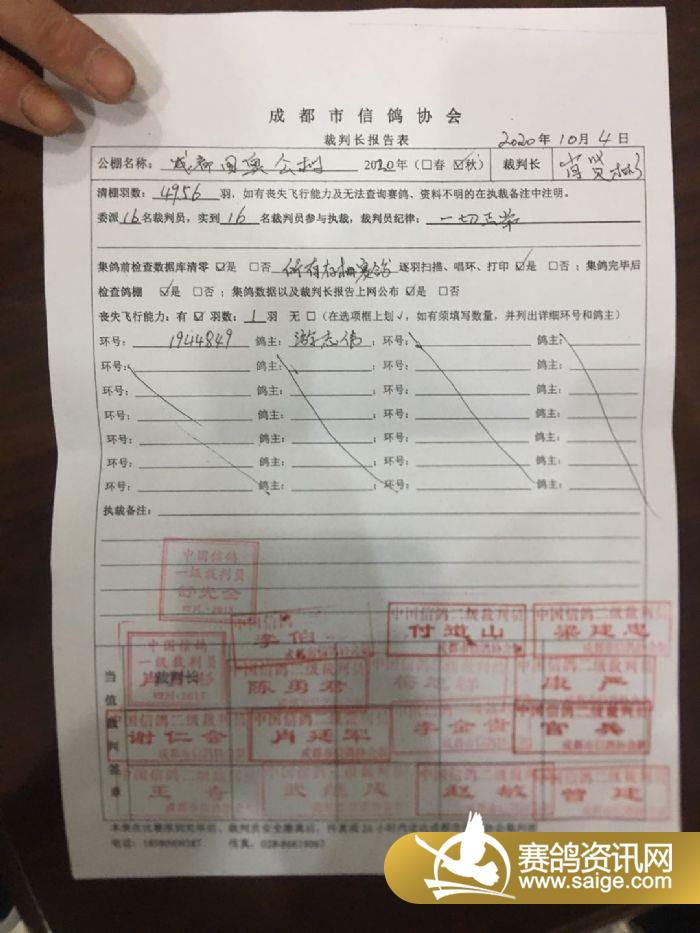 成都市信鸽协会
裁判长报告表 2020年10月4日
公棚名称：成都国奥公棚 2020年（□春 ☑秋） 裁判长 肖贤彬
清棚羽数：4956 羽，如有丧失飞行能力及无法查询赛鸽、资料不明的在执裁备注中注明。
委派16名裁判员，实到16名裁判员参与执裁，裁判员纪律：一切正常
集鸽前检查数据库清零 ☑是 □否 所有存棚赛鸽 逐羽扫描、唱环、打印 ☑是 □否；集鸽完毕后
检查鸽棚 ☑是 □否；集鸽数据以及裁判长报告上网公布 ☑是 □否
丧失飞行能力：有 ☑ 羽数：1羽 无 □（在选项框上划√，如有须填写数量，并列出详细环号和鸽主）
环号：1944849 鸽主：游志伟；环号： 鸽主：
环号： 鸽主：；环号： 鸽主：
环号： 鸽主：；环号： 鸽主：
环号： 鸽主：；环号： 鸽主：
环号： 鸽主：；环号： 鸽主：
环号： 鸽主：；环号： 鸽主：
环号： 鸽主：；环号： 鸽主：
执裁备注：
中国信鸽
一级裁判员
舒先全
四川·2015
李伯
中国信鸽二级裁判员
付道山
成都市信鸽协会
中国信鸽二级裁判员
梁建忠
成都市信鸽协会
当值裁判签章
裁判长
中国信鸽
一级裁判员
四川·2015
陈勇君
康严
中国信鸽二级裁判员
谢仁金
成都市信鸽协会
中国信鸽二级裁判员
肖廷军
成都市信鸽协会
李金贵
中国信鸽二级裁判员
官兵
成都市信鸽协会
王春
武继茂
赵敏
曾建
电话： 传真：028-86619067
赛鸽资讯网
www.saige.com